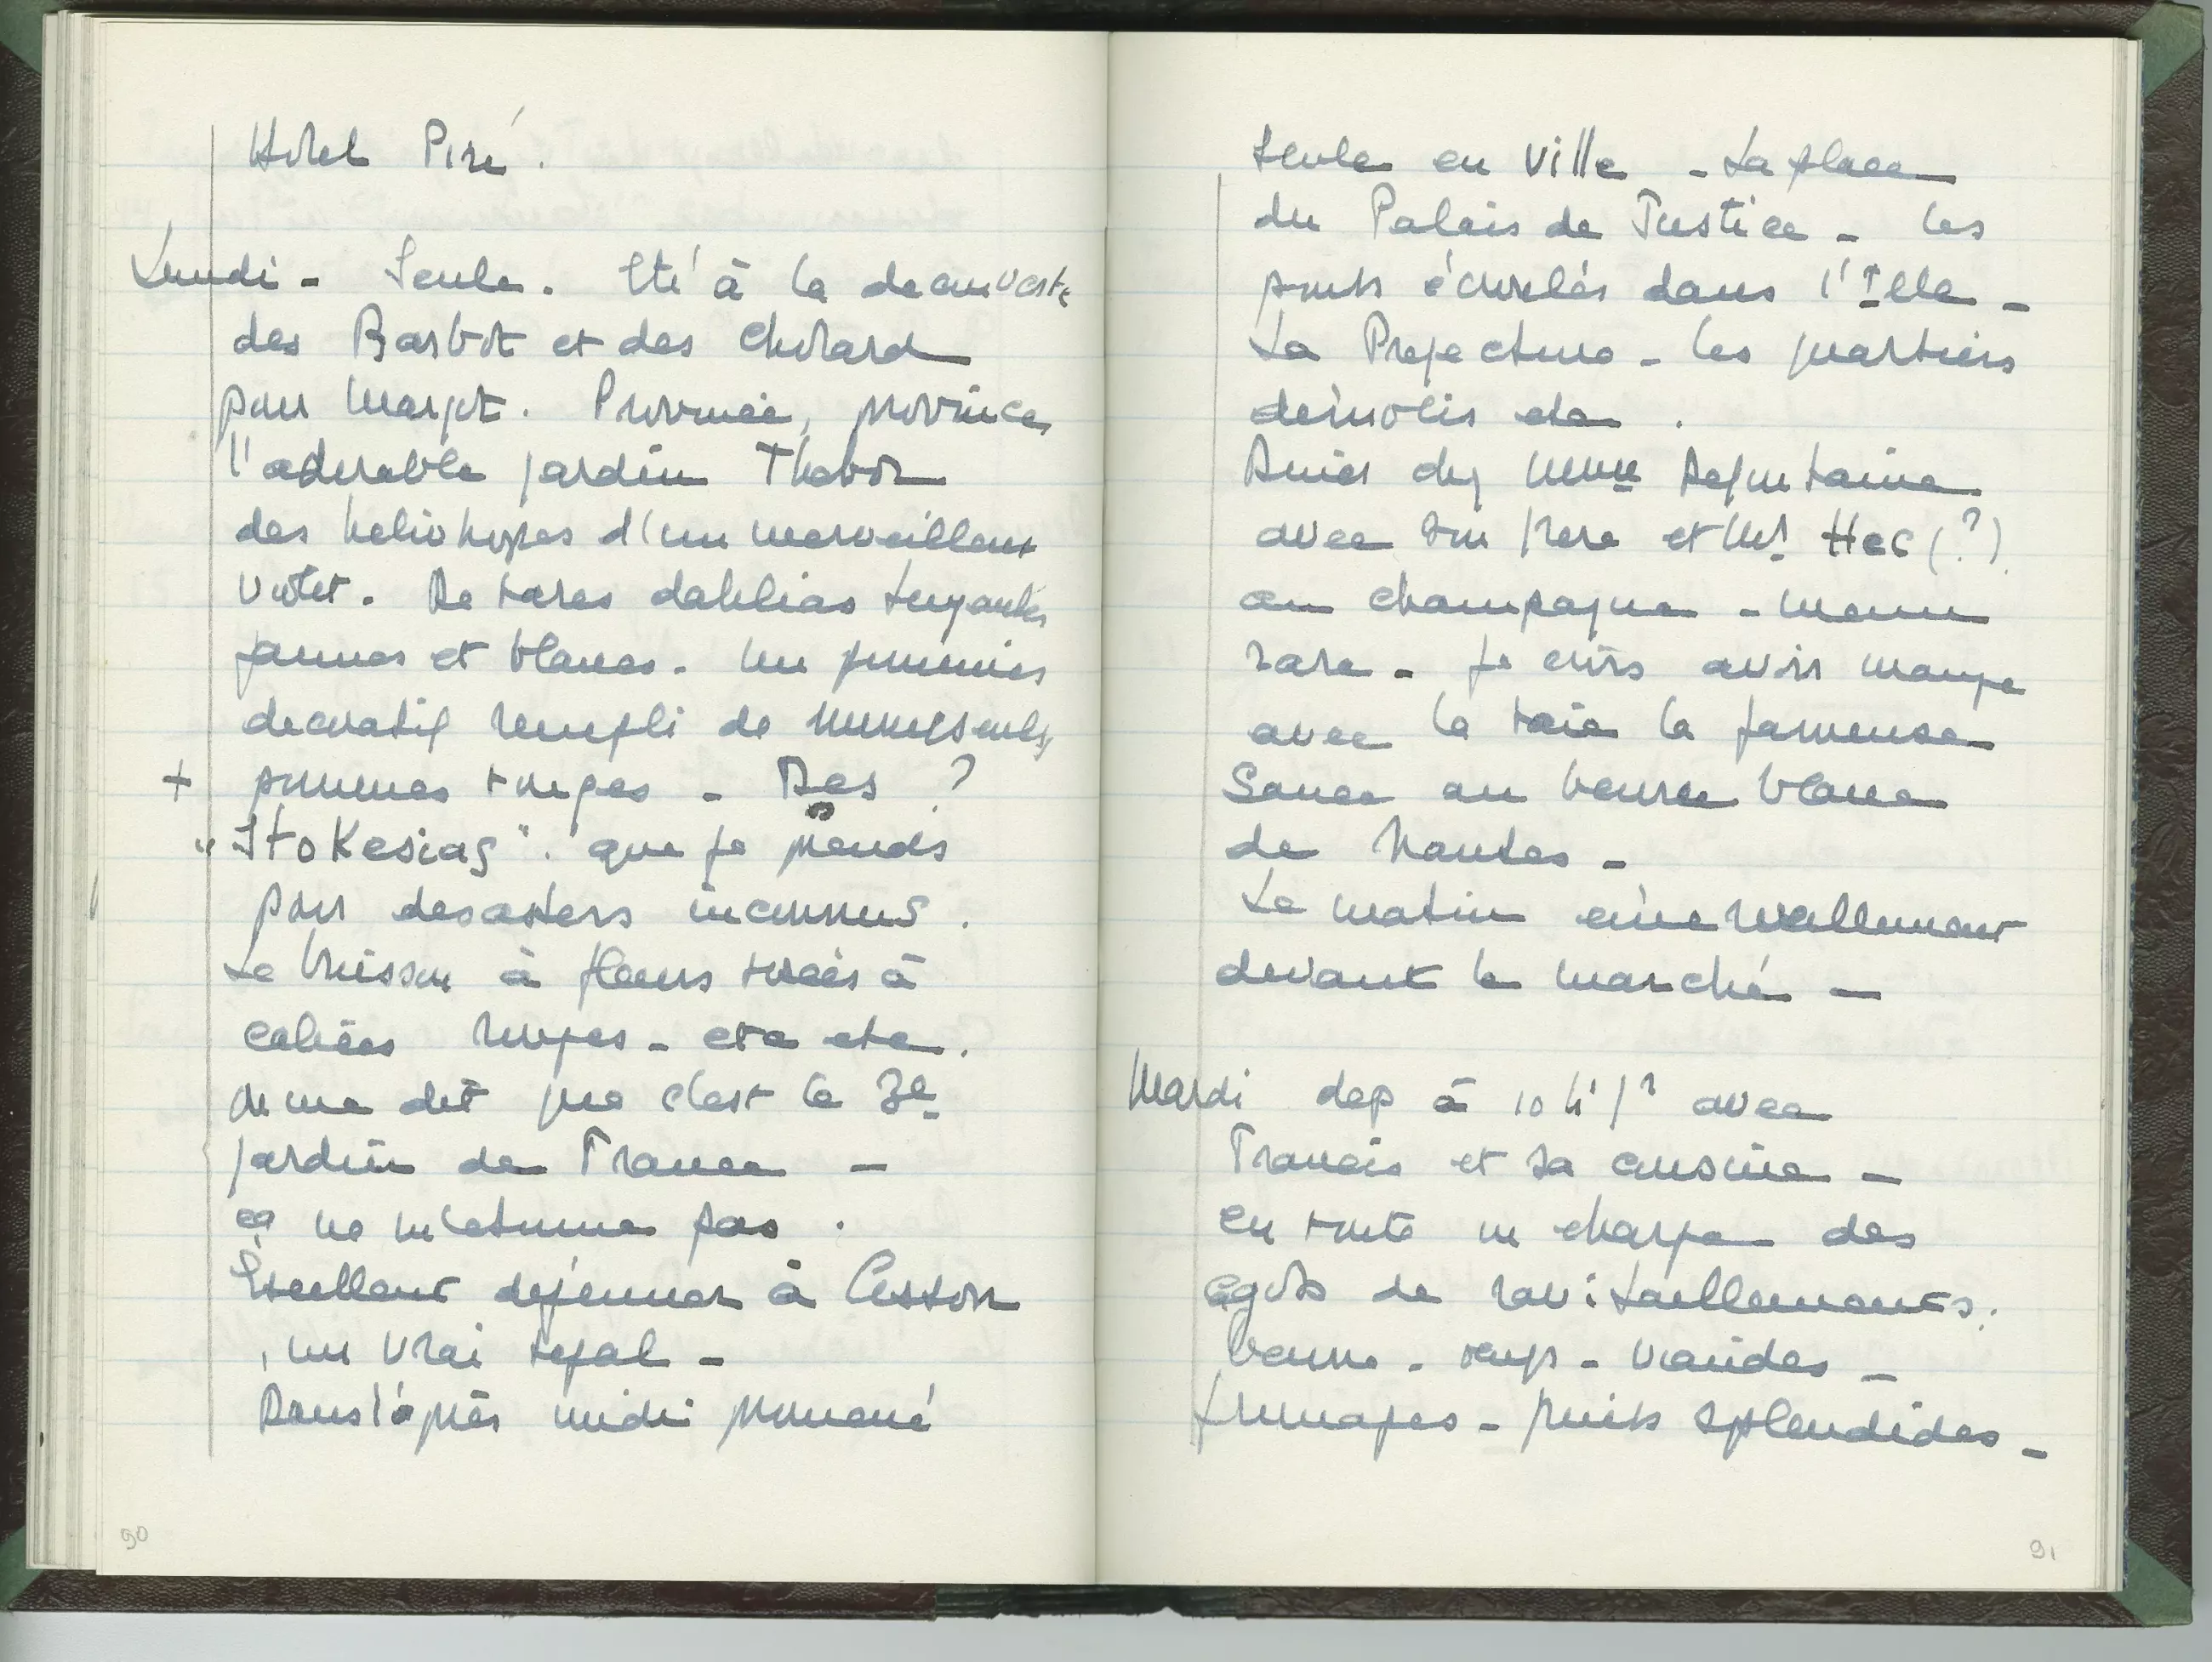 Hotel Piré.
Lundi - Seule. Eté à la decouverte
des Barbot et des Cholard
pour Margot. Province, province
l'adorable jardin Thabor
des heliotropes d'un merveilleux
violet. De rares dahlias
jaunes et blancs. Un pommier
decoratif rempli de minuscules
+ pommes rouges - Des ?
"Stokesias". que je prends
pour des asters inconnus.
Le buisson à fleurs à
calices rouges - etc etc.
On me dit que c'est le 3e
jardin de France -
ça ne m'etonne pas.
Excellent dejeuner à Cesson
, un vrai regal -
Dans l'après midi promené
90
seule en ville - La place
du Palais de Justice - les
ponts écroulés dans l'Ille -
La Prefecture - les quartiers
démolis etc.
Diner chez Mme Defontaine
avec son frere et Mr Hec (?)
au champagne - menu
rare - Je crois avoir mangé
avec la raie la fameuse
Sauce au beurre blanc
de Nantes -
Le matin émerveillement
devant le marché -
Mardi dep à 10 h 1/2 avec
Francis et sa cousine -
en route on charge des
cagots de ravitaillements.
beurre - oeufs - viandes -
fromages - fruits splendides -
91